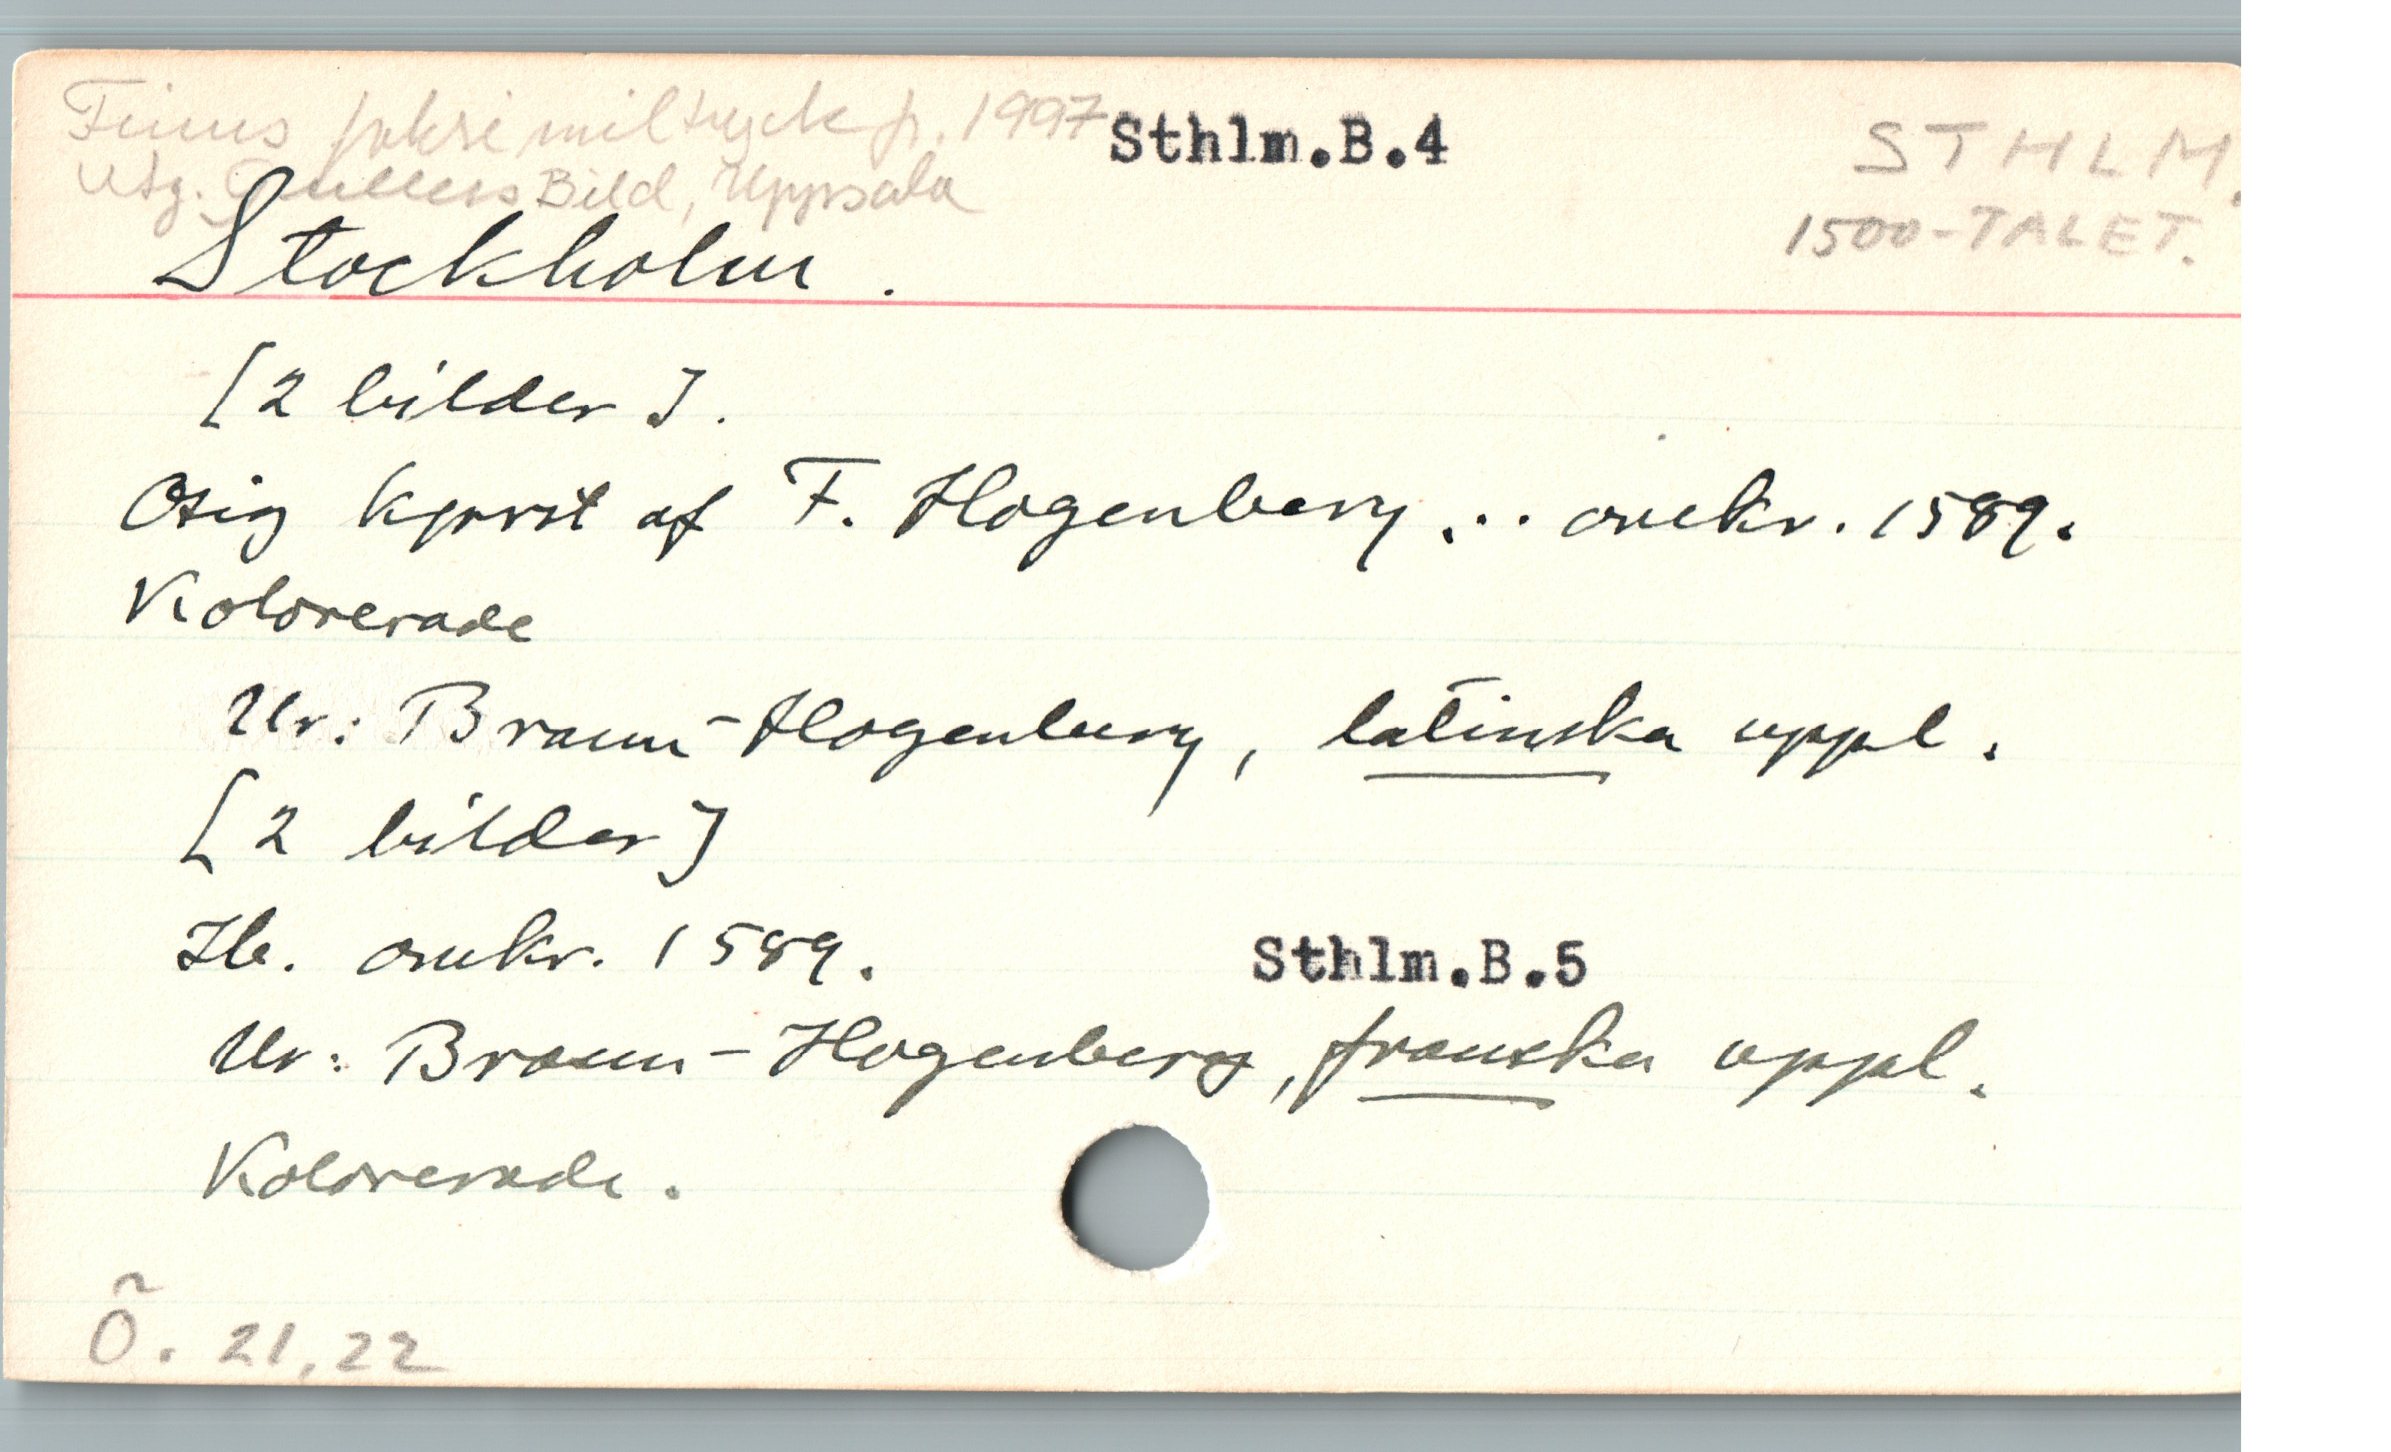 Finns faksimiltryck fr. 1997
Sthlm.B.4
STHLM.
Utg. Gullers Bild, Uppsala
1500-TALET.
Stockholm.
[2 bilder].
Osig kprst af F. Hogenberg... omkr. 1589.
Kolorerade
Ur: Braun-Hogenberg, latinska uppl.
[2 bilder]
Ib. omkr. 1589.
Sthlm.B.5
Ur: Braun-Hogenberg, franska uppl.
Kolorerade.
Õ. 21,22